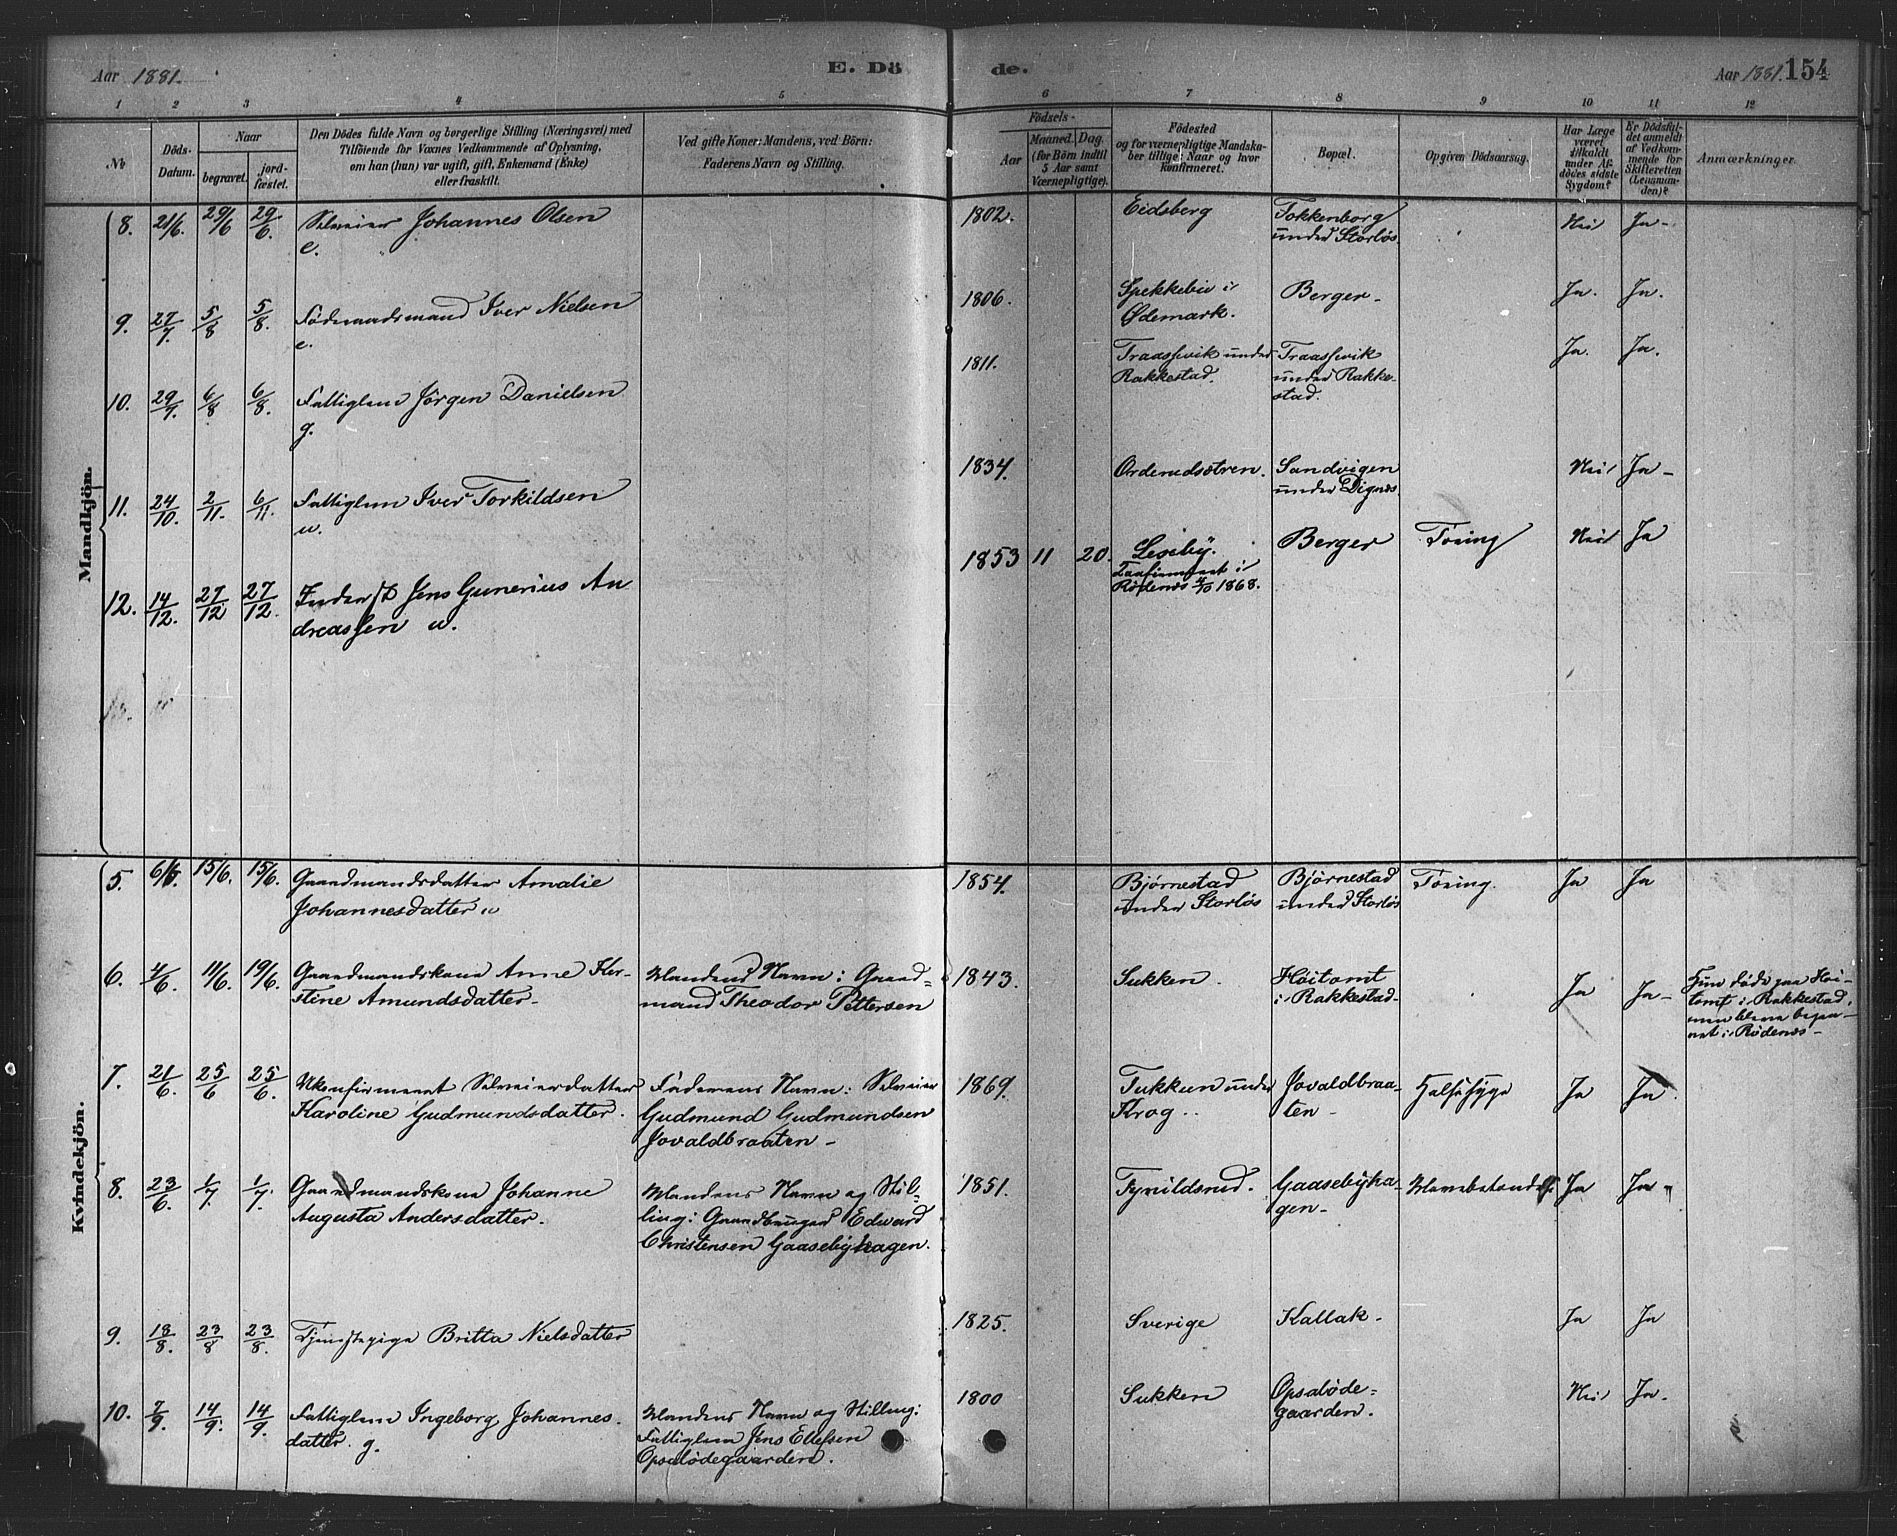 Aar 1881.
E. Dö
de.
Aar 1881.
154
1 2 3 4 5 6 7 8 9 10 11 12
No
Döds-
Datum.
Naar
begravet.
jord-
fæstet.
Den Dödes fulde Navn og borgerlige Stilling (Næringsvei) med
Tilföiende for Voxnes Vedkommende af Oplysning,
om han (hun) var ugift, gift, Enkemand (Enke)
eller fraskilt.
Ved gifte Koner: Mandens, ved Börn:
Faderens Navn og Stilling.
Födsels-
Aar
Maaned. Dag.
(for Börn indtil
5 Aar samt
Værnepligtige).
Födested
og for værnepligtige Mandska-
ber tillige: Naar og hvor
konfirmeret.
Bopæl.
Opgiven Dödsaarsag.
Har Læge
været
tilkaldt
under Af-
dödes sidste
Sygdom?
Er Dödsfal-
det anmeldt
af Vedkom-
mende for
Skifteretten
(Lensman-
den)?
Anmærkninger.
Mandkjön.
8. 21/6. 29/6 29/6. Selveier Johannes Olsen
e.
1802. Eidsberg Fokkenborg
under Storløs. Nei Ja-
9. 27/7. 5/8 5/8. Föderaadsmand Iver Nielsen
e.
1806. Spekkebøi i
Ødemark. Berger- Ja. Ja.
10. 29/7. 6/8 6/8. Fattiglem Jörgen Danielsen
g.
1811. Traassevik under
Rakkestad. Traassevik
under Rakke-
stad. Ja. Ja.
11. 24/10. 2/11. 6/11. Fattiglem Iver Torkildsen
u.
1834. Orderudsætren. Sandvigen
under Dignæs. Nei Ja-
12. 14/12. 27/12 27/12. Inderst Jens Gunerius An
dreassen u.
1853 11 20. Leseby.
i
Rødenæs 1868. Berger Tæring Nei Ja
Kvindekjön.
5. 6/6. 15/6. 15/6. Gaardmandsdatter Amalie
Johannesdatter u
1854. Bjørnestad
under Storløs Bjørnestad
under Storløs Tæring. Ja Ja
6. 4/6. 11/6. 19/6. Gaardmandskone Anne Ker-
stine Amundsdatter- Mandens Navn: Gaard-
mand Theodor Pettersen
1843. Sukken. Høitomt
i Rakkestad- Ja Ja- Hun døde paa Høi-
tomt i Rakkestad,
men blev begra-
vet i Rødenæs-
7. 21/6. 25/6 25/6. Ukonfirmeret Selveierdatter
Karoline Gudmundsdatter. Faderens Navn: Selveier
Gudmund Gudmundsen
Jovaldbraaten-
1869. Tukkun under
Krog.. Jovaldbraa-
ten- Halssyge Ja Ja.
8. 23/6. 1/7. 1/7. Gaardmandskone Johanne
Augusta Andersdatter. Mandens Navn og Stil-
ling: Gaardbruger Edvard
Christensen Gaasebyhagen.
1851. Fynildsrud. Gaasebyha-
gen- Ja Ja-
9. 18/8. 23/8 23/8. Tjenestepige Britta Nielsdatter
1825. Sverige Kallak- Ja Ja
10. 7/9. 14/9. 14/9. Fattiglem Ingeborg Johannes-
datter. g. Mandens Navn og Stilling:
Fattiglem Jens Ellefsen
Opsalødegaarden.
1800 Sukken Opsaløde-
gaarden. Nei Ja.